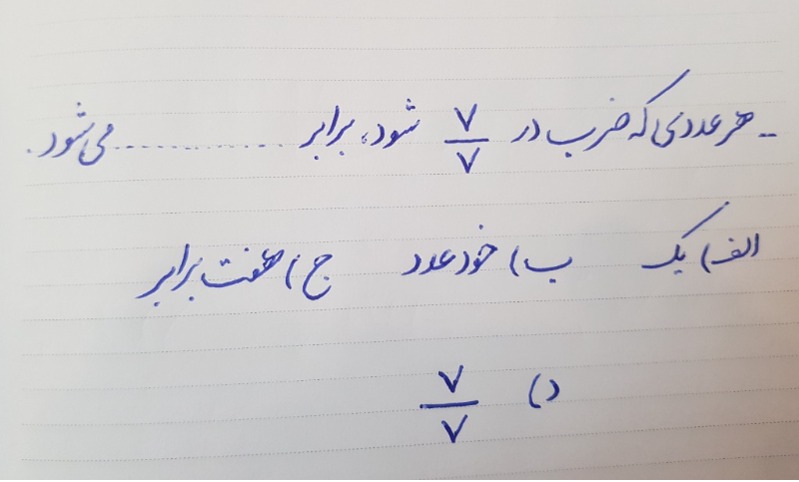 - هر عددی که ضرب در ۷/۷ شود، برابر .............. می‌شود.
الف) یک ب) خود عدد ج) هفت برابر
د) ۷/۷